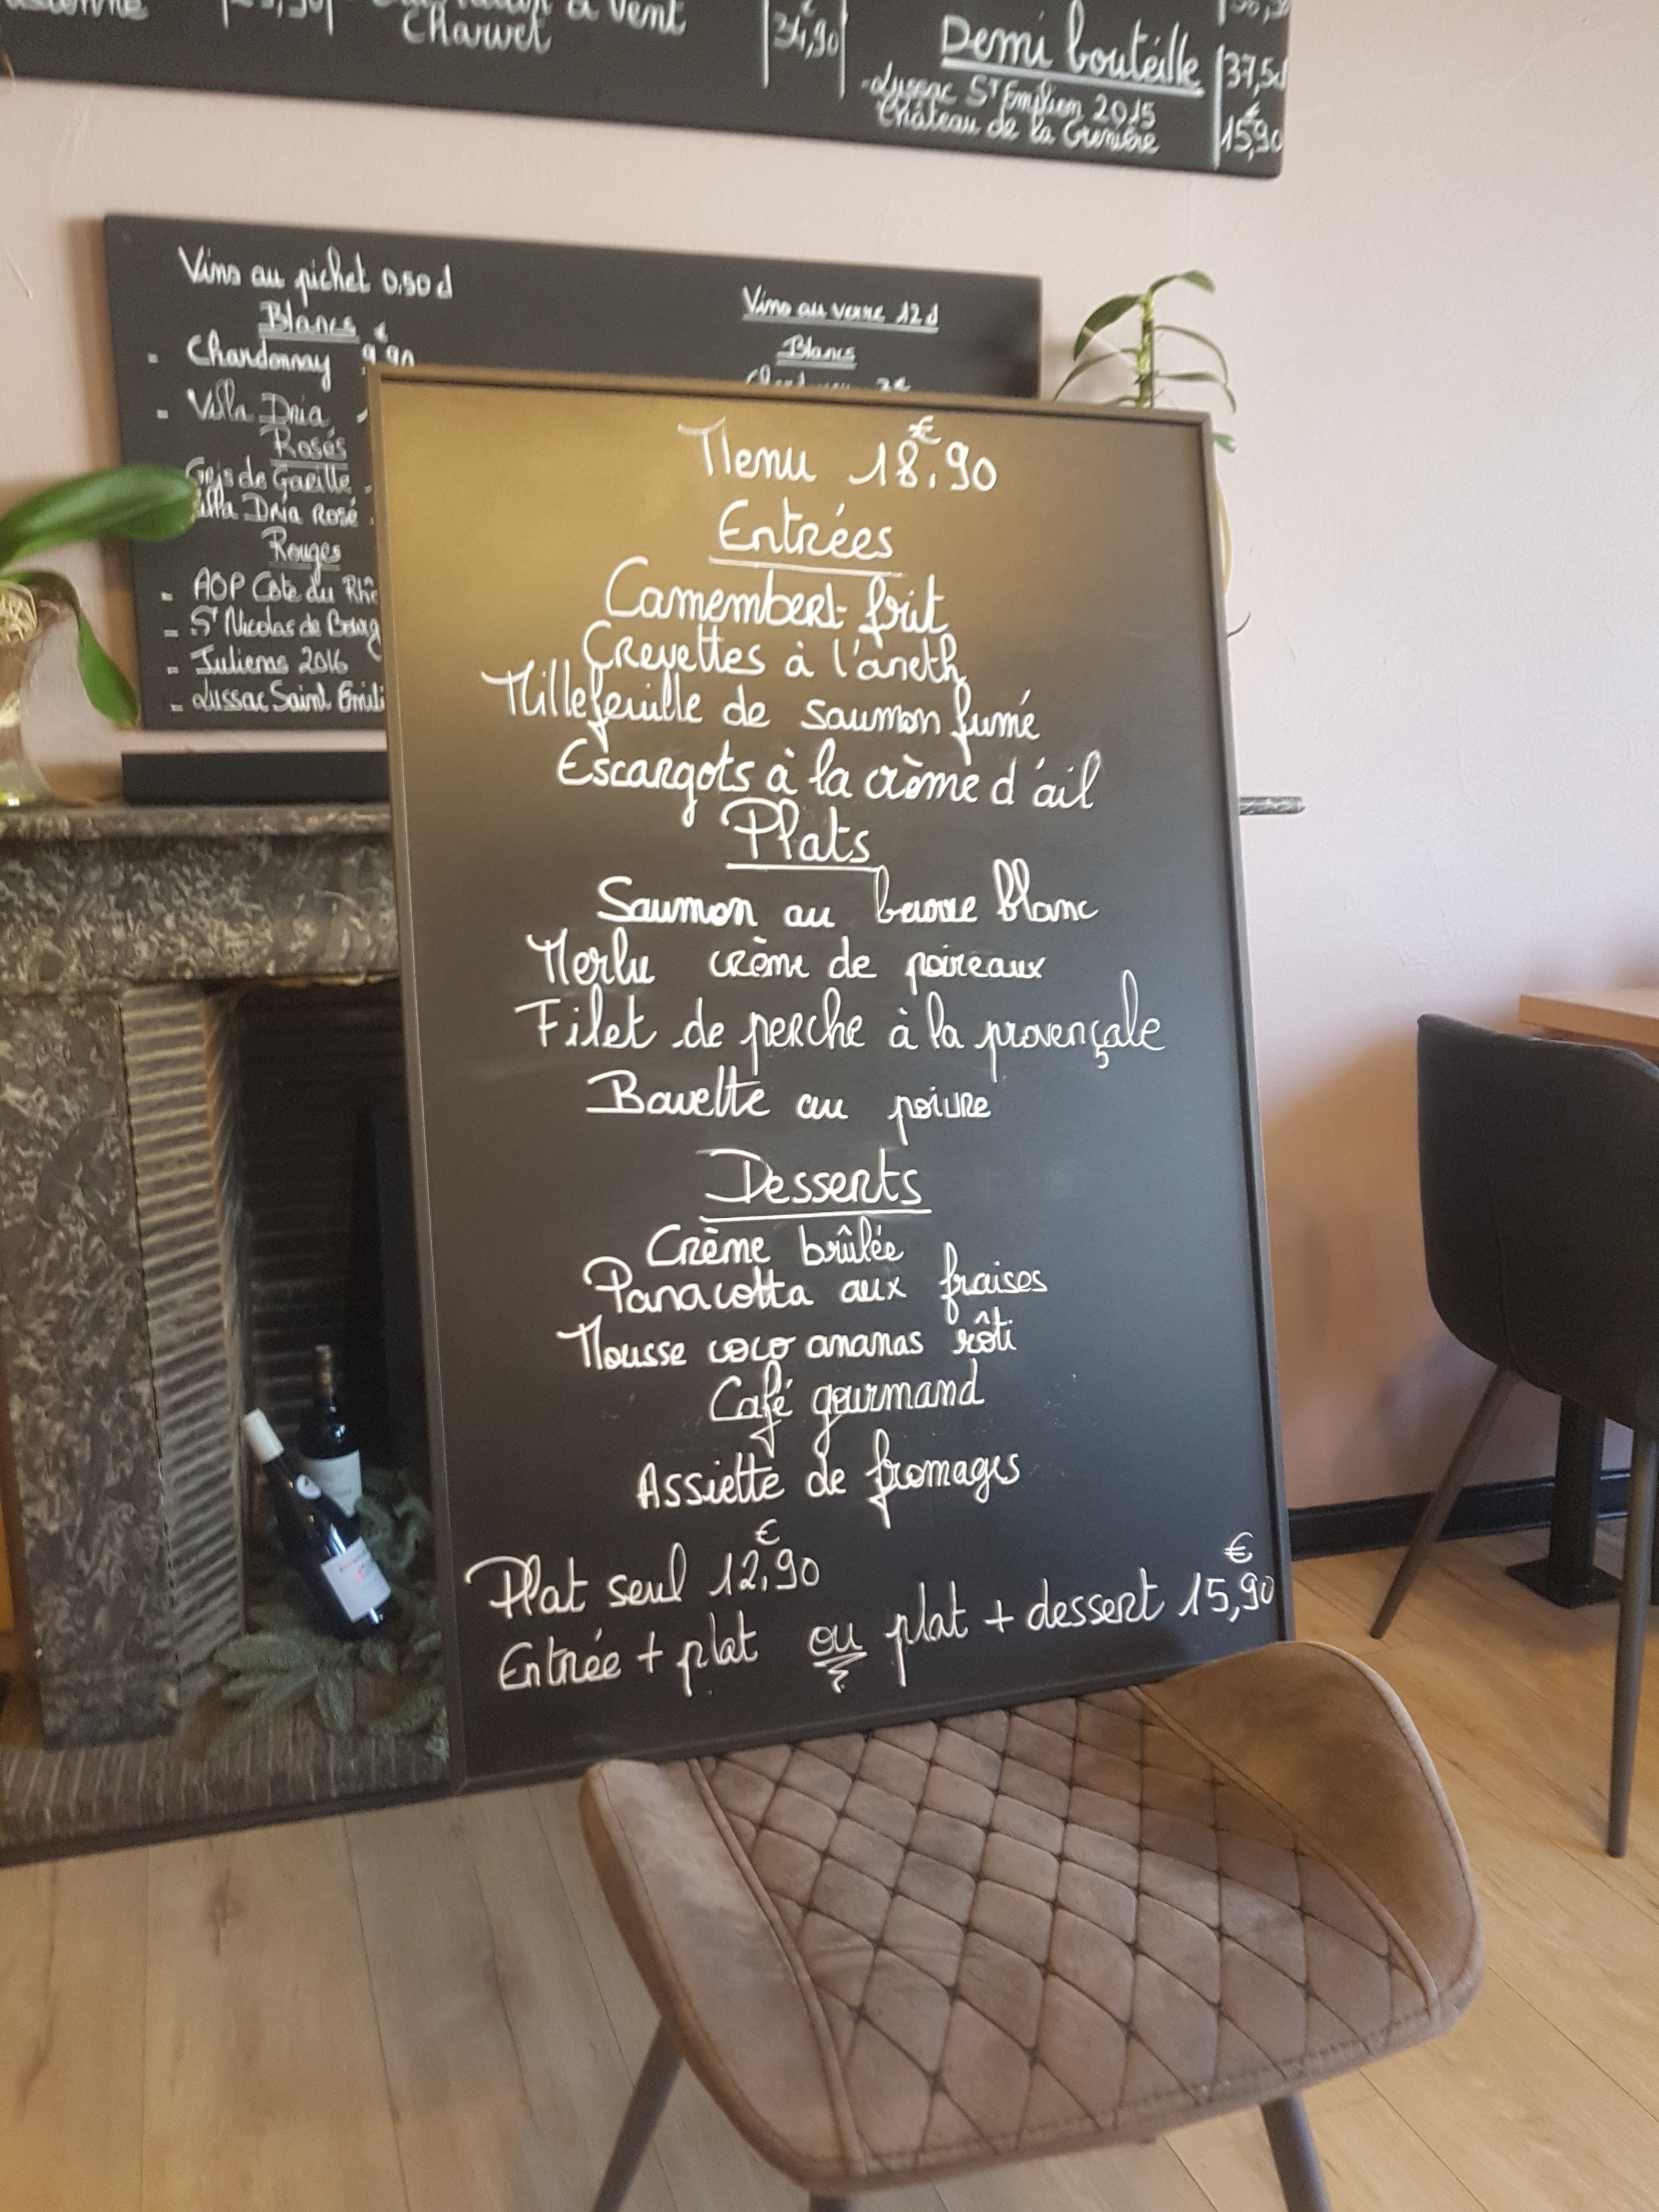 Charvet
34,90
Demi bouteille
37,50
-Lussac St Emilion 2015
Château de la Grenière
15,90 €
Vins au pichet 0.50 cl
Blancs €
- Chardonnay 9.90
- Villa Dria
Rosés
Gris de
Villa Dria Rosé
Rouges
- AOP Côte du Rhô
- St Nicolas de Bourg
- Juliens 2016
- Lussac Saint Emili
Vins au verre 12 cl
Blancs
Menu 18€.90
Entrées
Camembert frit
Crevettes à l'aneth
Millefeuille de saumon fumé
Escargots à la crème d'ail
Plats
Saumon au beurre blanc
Merlu crème de poireaux
Filet de perche à la provençale
Bavette au poivre
Desserts
Crème brûlée
Panacotta aux fraises
Mousse coco ananas rôti
Café gourmand
Assiette de fromages
Plat seul 12,90 €
Entrée + plat ou plat + dessert 15,90 €